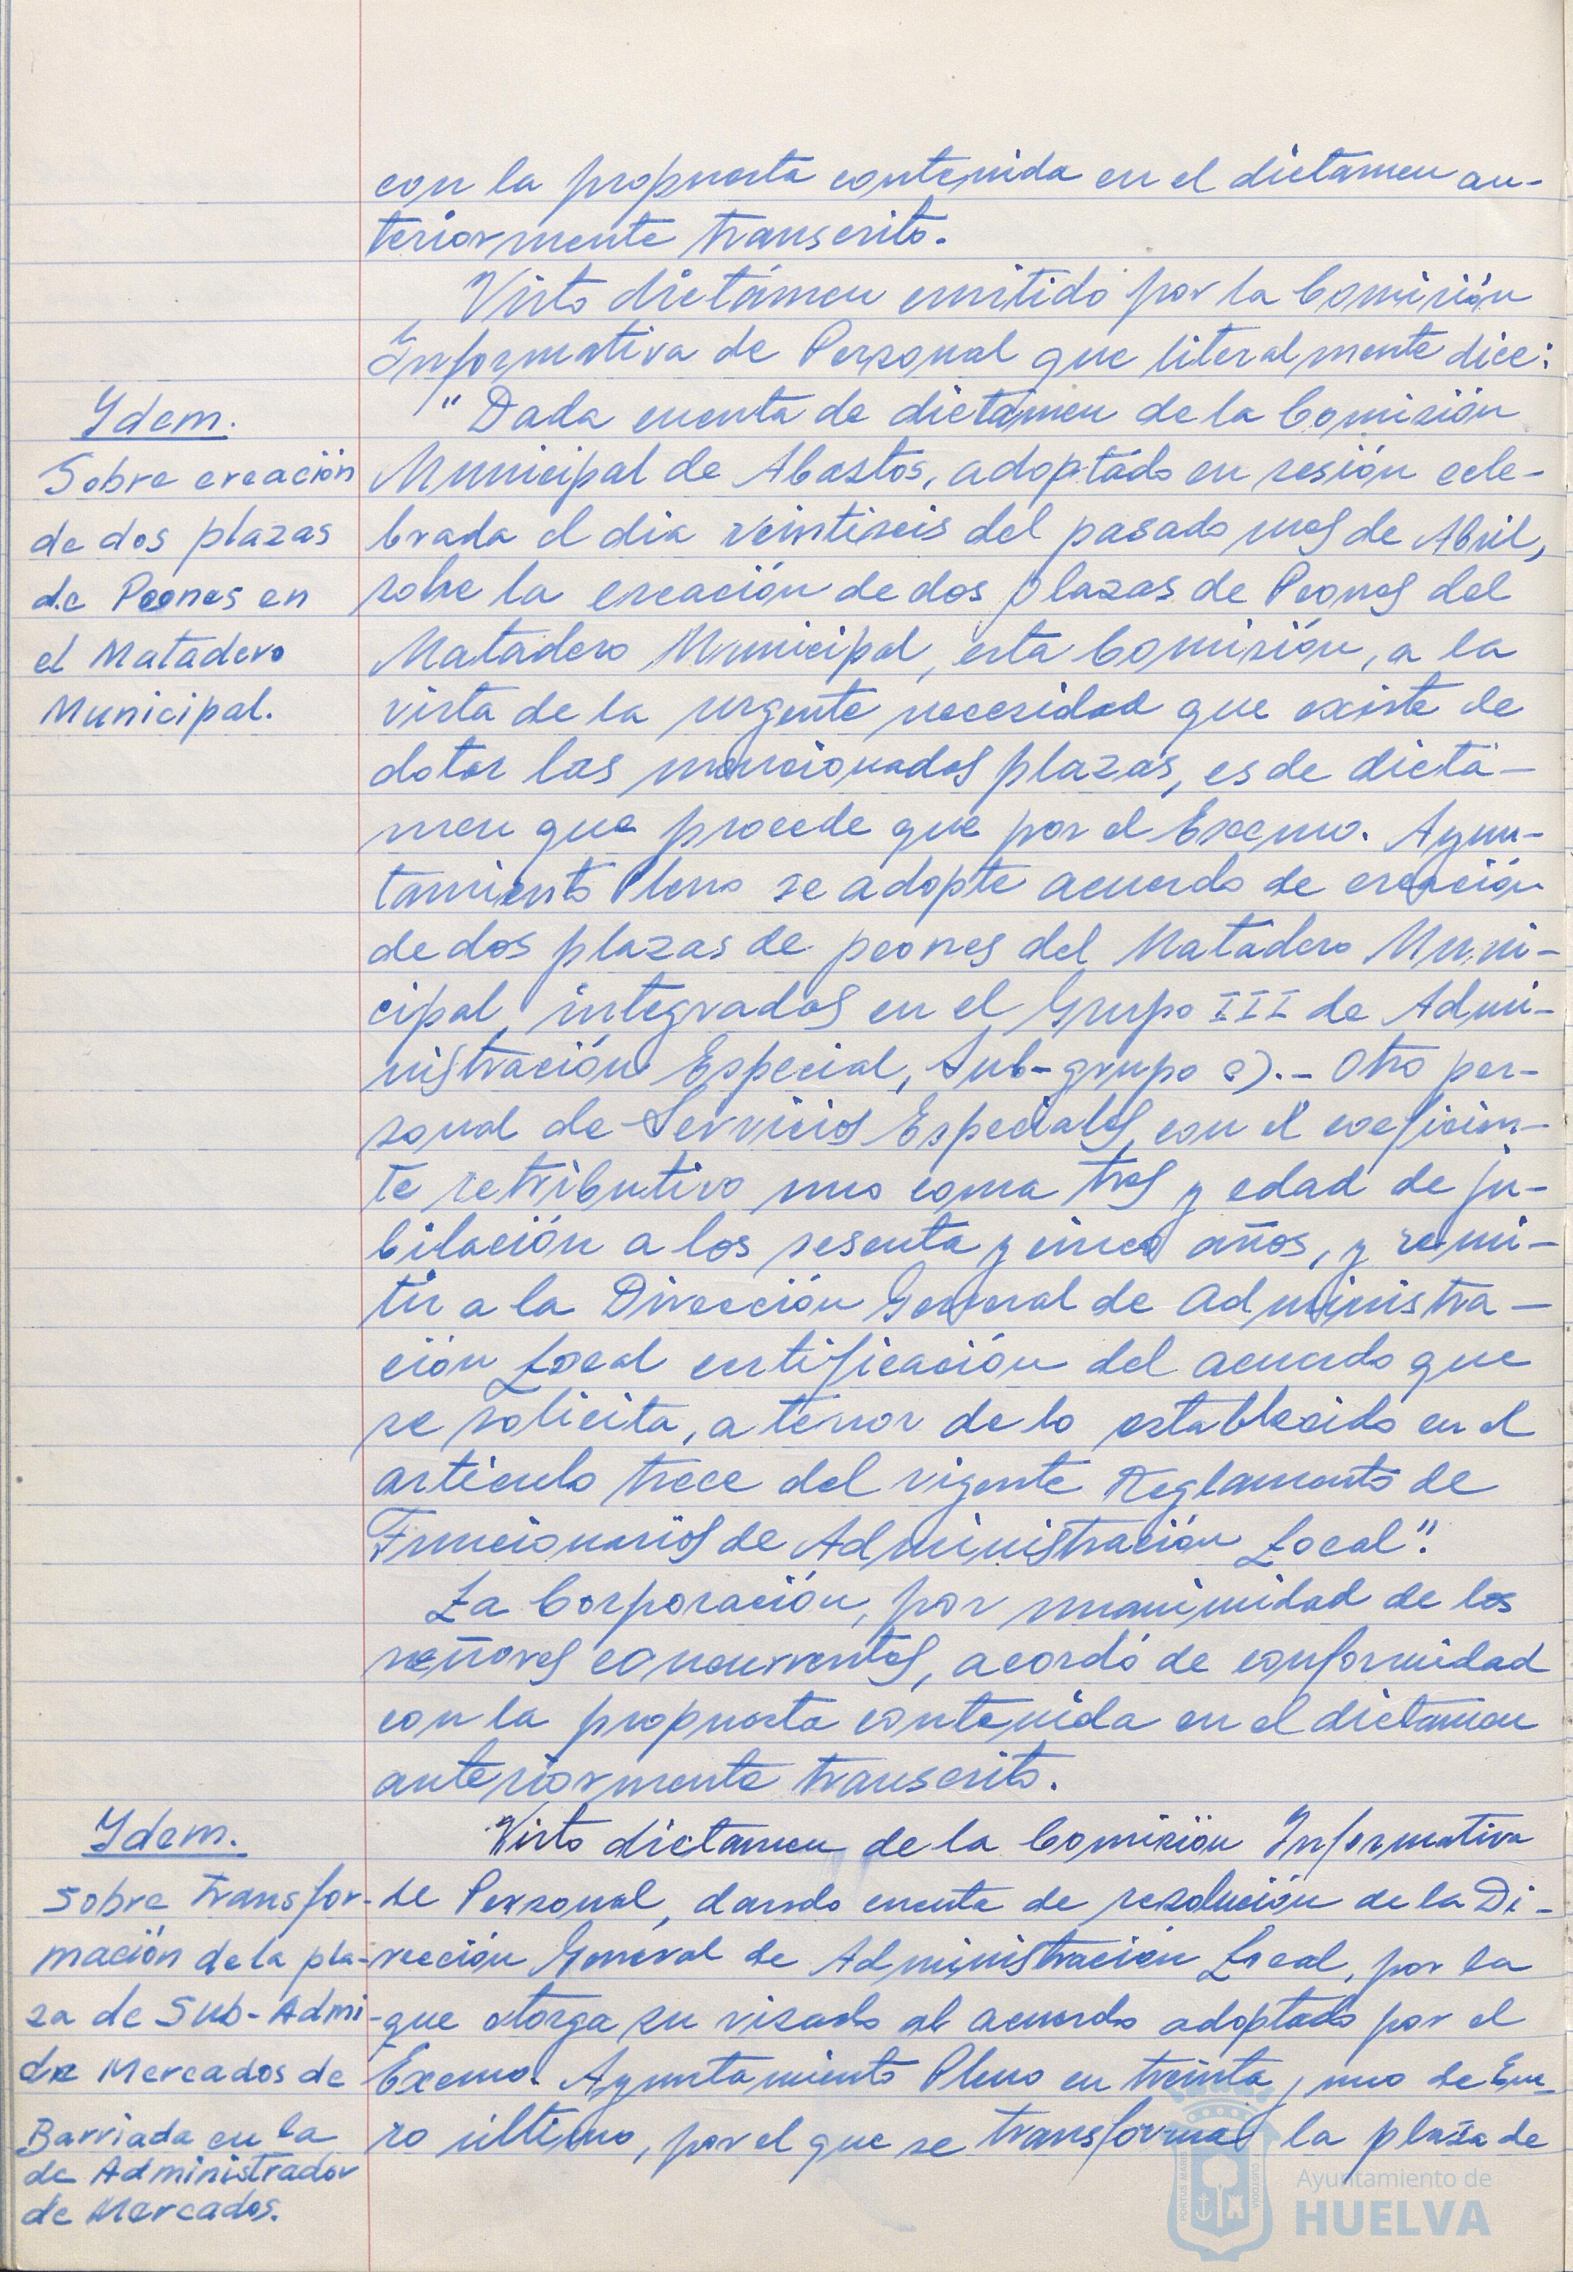 con la propuesta contenida en el dictamen an-
teriormente transcrito.
Visto dictámen emitido por la Comisión
Informativa de Personal que literalmente dice:
Ydem.
Sobre creación
de dos plazas
de Peones en
el Matadero
Municipal.
"Dada cuenta de dictamen de la Comisión
Municipal de Abastos, adoptado en sesión cele-
brada el dia veintiseis del pasado mes de Abril,
sobre la creación de dos plazas de Peones del
Matadero Municipal, esta Comisión, a la
vista de la urgente necesidad que existe de
dotar las mencionadas plazas, es de dictá-
men que procede que por el Excmo. Ayun-
tamiento Pleno se adopte acuerdo de creación
de dos plazas de peones del Matadero Muni-
cipal, integradas en el Grupo III de Admi-
nistración Especial, Sub-grupo c).- Otro per-
sonal de Servicios Especiales, con el coeficien-
te retributivo uno coma tres y edad de ju-
bilación a los sesenta y cinco años, y remi-
tir a la Dirección General de Administra-
ción Local certificación del acuerdo que
se solicita, a tenor de lo establecido en el
artículo trece del vigente Reglamento de
Funcionarios de Administración Local".
La Corporación, por unanimidad de los
señores concurrentes, acordó de conformidad
con la propuesta contenida en el dictamen
anteriormente transcrito.
Ydem.
Sobre transfor-
mación de la pla-
za de Sub-Admi-
de Mercados de
Barriada en la
de Administrador
de Mercados.
Visto dictamen de la Comisión Informativa
de Personal, dando cuenta de resolución de la Di-
rección General de Administración Local, por la
que otorga su visado al acuerdo adoptado por el
Excmo. Ayuntamiento Pleno en treinta y uno de Ene-
ro último, por el que se transforma la plaza de
Ayuntamiento de
HUELVA